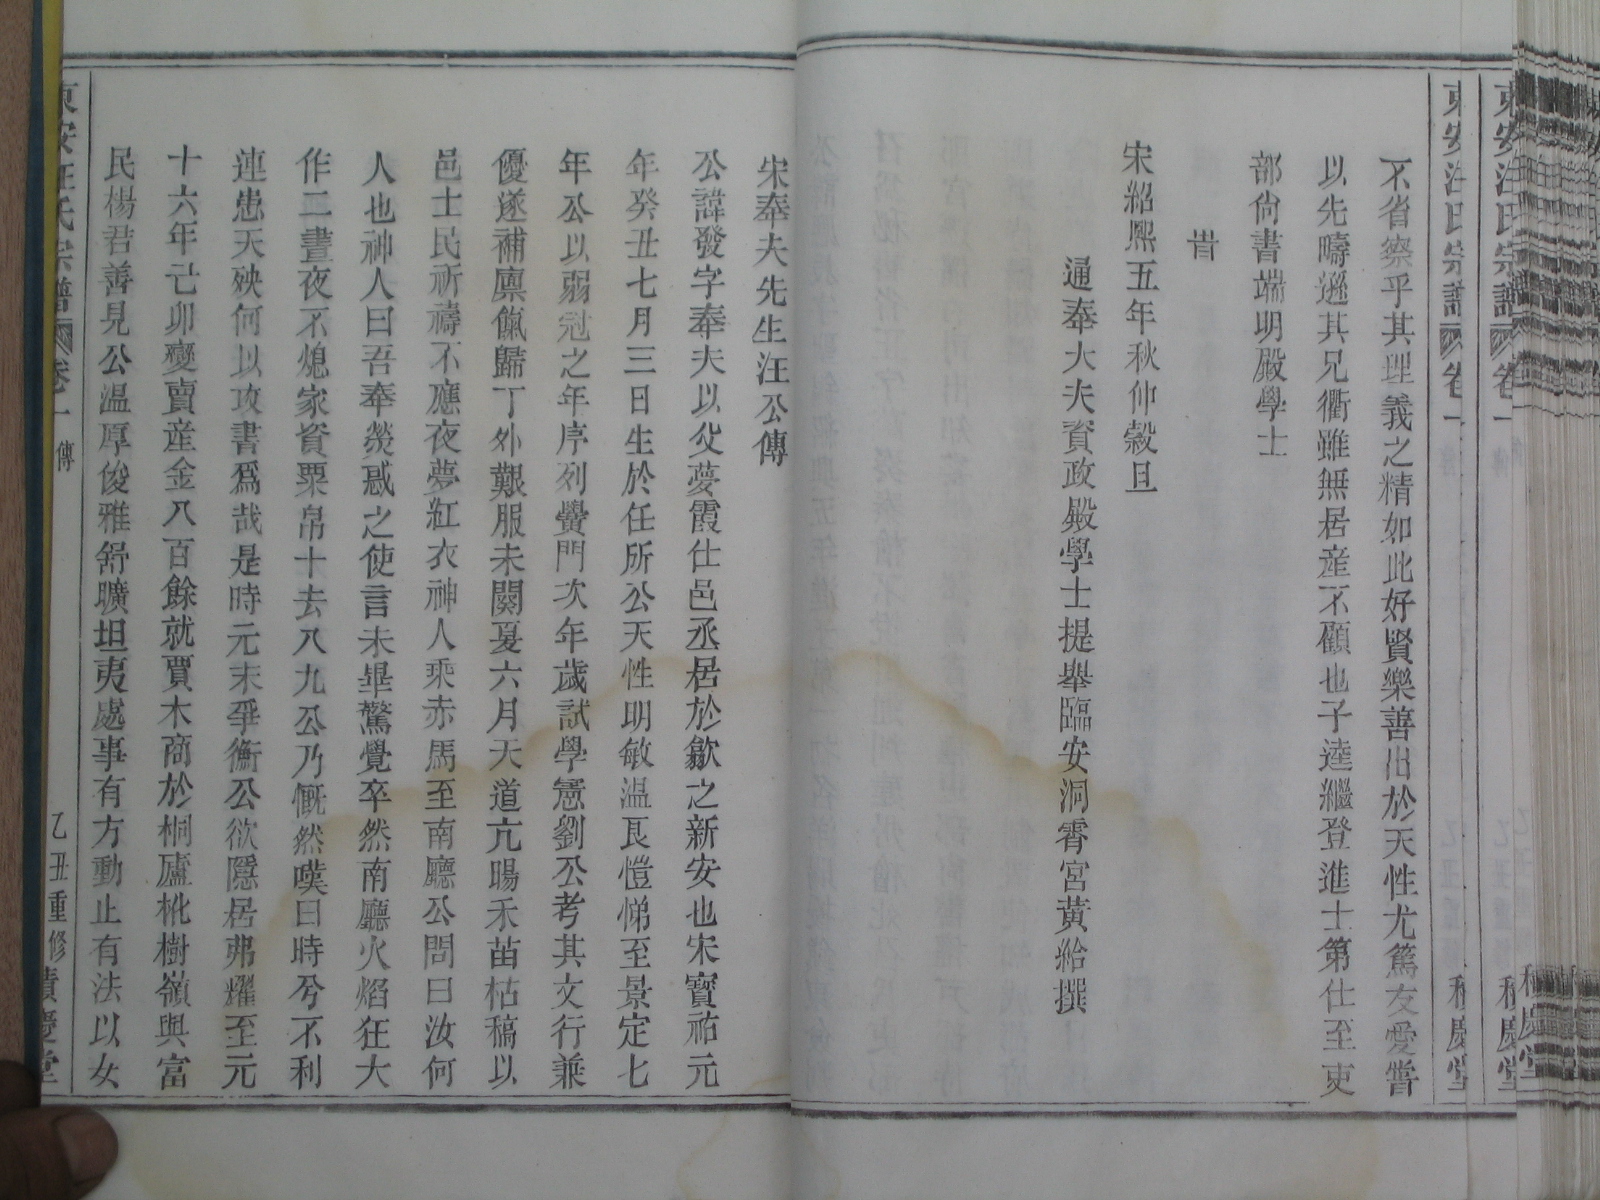 東安汪氏宗譜 卷一 積慶堂
不省察乎其理義之精如此好賢樂善出於天性尤篤友愛嘗
以先疇遜其兄衢雖無居産不顧也子逵繼登進士第仕至吏
部尚書端明殿學士
旹
宋紹熙五年秋仲穀旦
通奉大夫資政殿學士提舉臨安洞霄宮黄給撰
宋奉夫先生汪公傳
公諱發字奉夫以父夢霞仕邑丞居於歙之新安也宋寶祐元
年癸丑七月三日生於任所公天性明敏温良愷悌至景定七
年公以弱冠之年序列黌門次年歲試學憲劉公考其文行兼
優遂補廩餼歸丁外艱服未闋夏六月天道亢暘禾苗枯稿以
邑士民祈禱不應夜夢紅衣神人乘赤馬至南廳公問曰汝何
人也神人曰吾奉熒惑之使言未畢驚覺卒然南廳火焰狂大
作二晝夜不熄家資粟帛十去八九公乃慨然嘆曰時兮不利
連患天殃何以攻書爲哉是時元末爭衡公欲隱居弗耀至元
十六年己卯變賣産金八百餘就賈木商於桐廬枇樹嶺與富
民楊君善見公温厚俊雅舒曠坦夷處事有方動止有法以女
東安汪氏宗譜 卷一 傳 乙丑重修 積慶堂